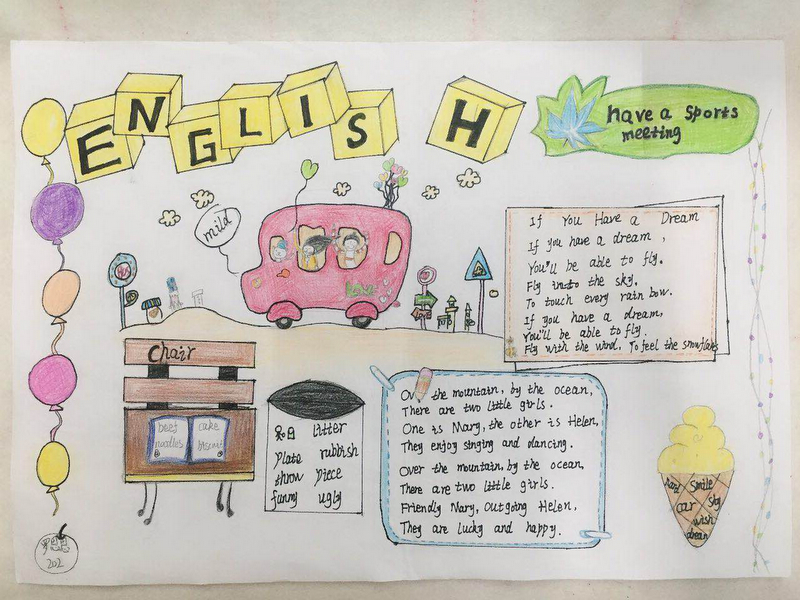 ENGLISH
have a sports
meeting
mild
If You Have a Dream
If you have a dream,
You'll be able to fly.
Fly into the sky.
To touch every rain bow.
If you have a dream,
You'll be able to fly.
Fly with the wind, To feel the snowflakes
Chair
beef
noodles
cake
biscuit
litter
plate rubbish
throw piece
funny ugly
Over the mountain, by the ocean,
There are two little girls.
One is Mary, the other is Helen,
They enjoy singing and dancing.
Over the mountain, by the ocean,
There are two little girls.
Friendly Mary, Outgoing Helen,
They are lucky and happy.
Smile
car
sky
wish
dream
202